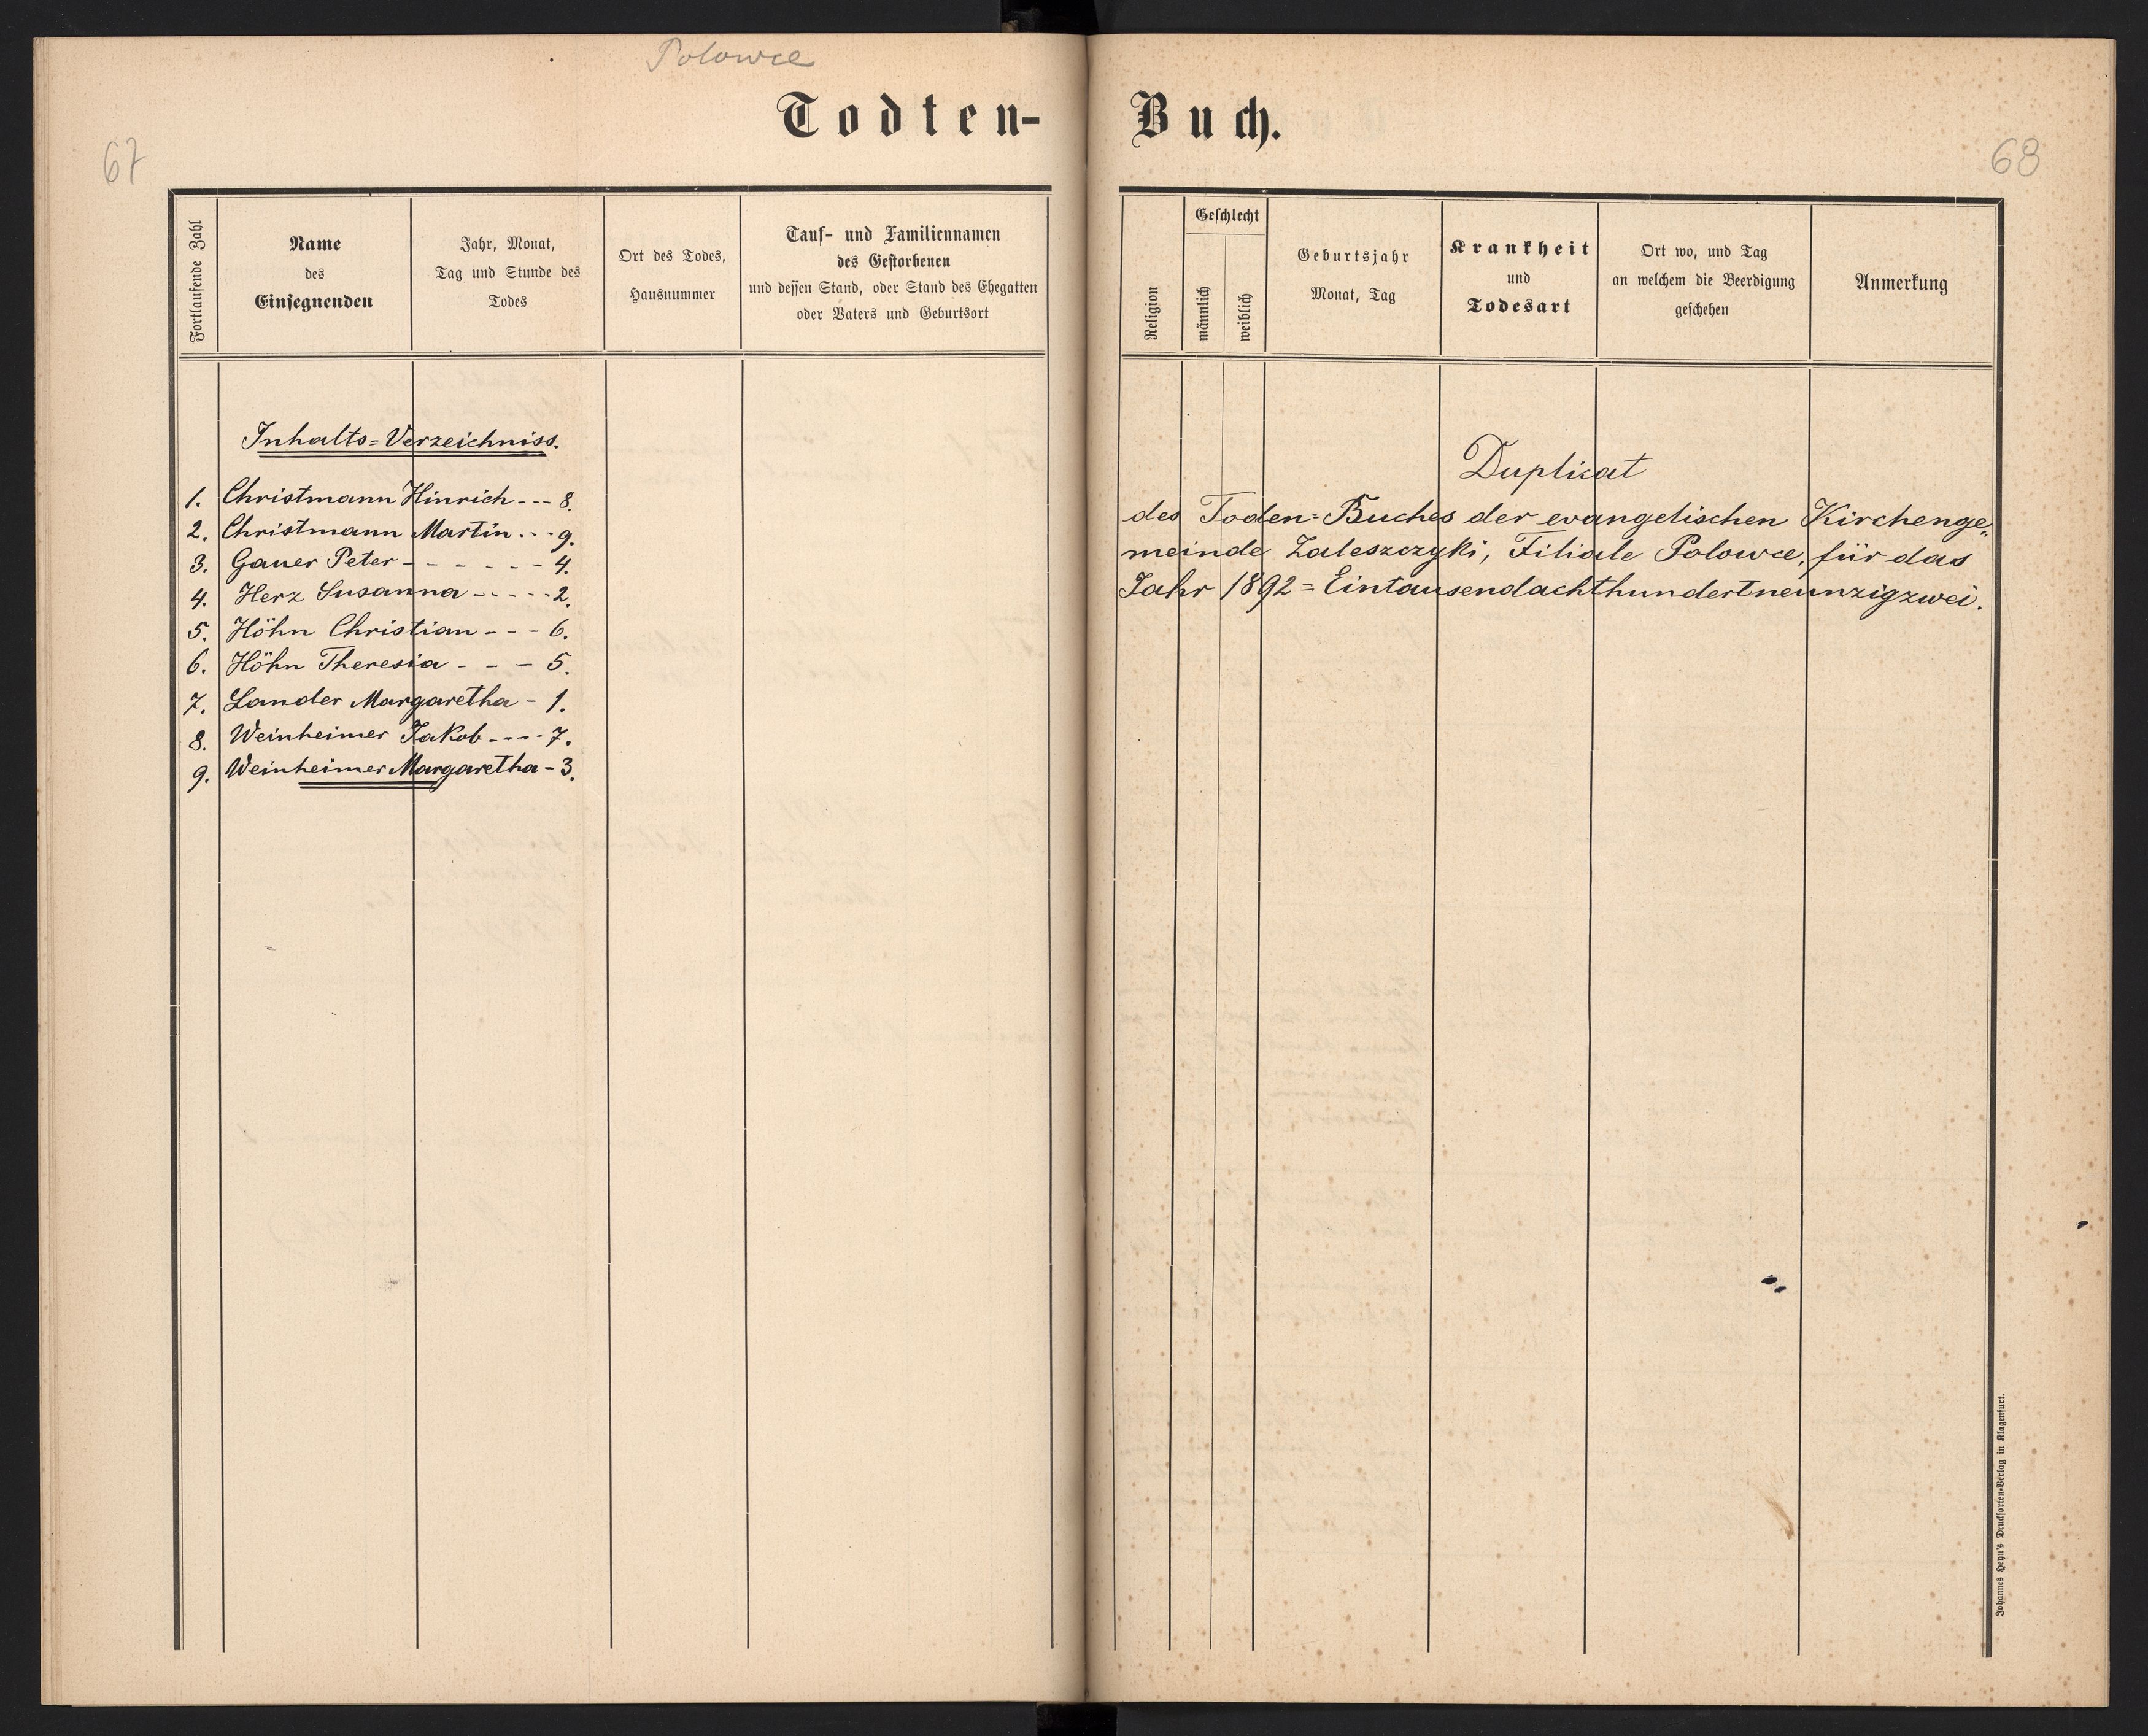 Polowce
Todten-
67
Fortlaufende Zahl
Name
des
Einsegnenden
Jahr, Monat,
Tag und Stunde des
Todes
Ort des Todes,
Hausnummer
Tauf- und Familiennamen
des Gestorbenen
und dessen Stand, oder Stand des Ehegatten
oder Vaters und Geburtsort
Inhalts=Verzeichniss.
1. Christmann Hinrich --- 8.
2. Christmann Martin --- 9.
3. Gauer Peter - - - - - - 4.
4. Herz Susanna - - - - - 2.
5. Höhn Christian - - - 6.
6. Höhn Theresia - - - 5.
7. Lander Margaretha - 1.
8. Weinheimer Jakob ---- 7.
9. Weinheimer Margaretha - 3.
Buch.
68
Religion
Geschlecht
männlich
weiblich
Geburtsjahr
Monat, Tag
Krankheit
und
Todesart
Ort wo, und Tag
an welchem die Beerdigung
geschehen
Anmerkung
Duplikat
des Toden=Buches der evangelischen Kirchenge„
meinde Zaleszczyki, Filiale Polowce, für das
Jahr 1892 = Eintausendachthundertneunzigzwei.
Johannes Heyn's Drucksorten-Verlag in Klagenfurt.